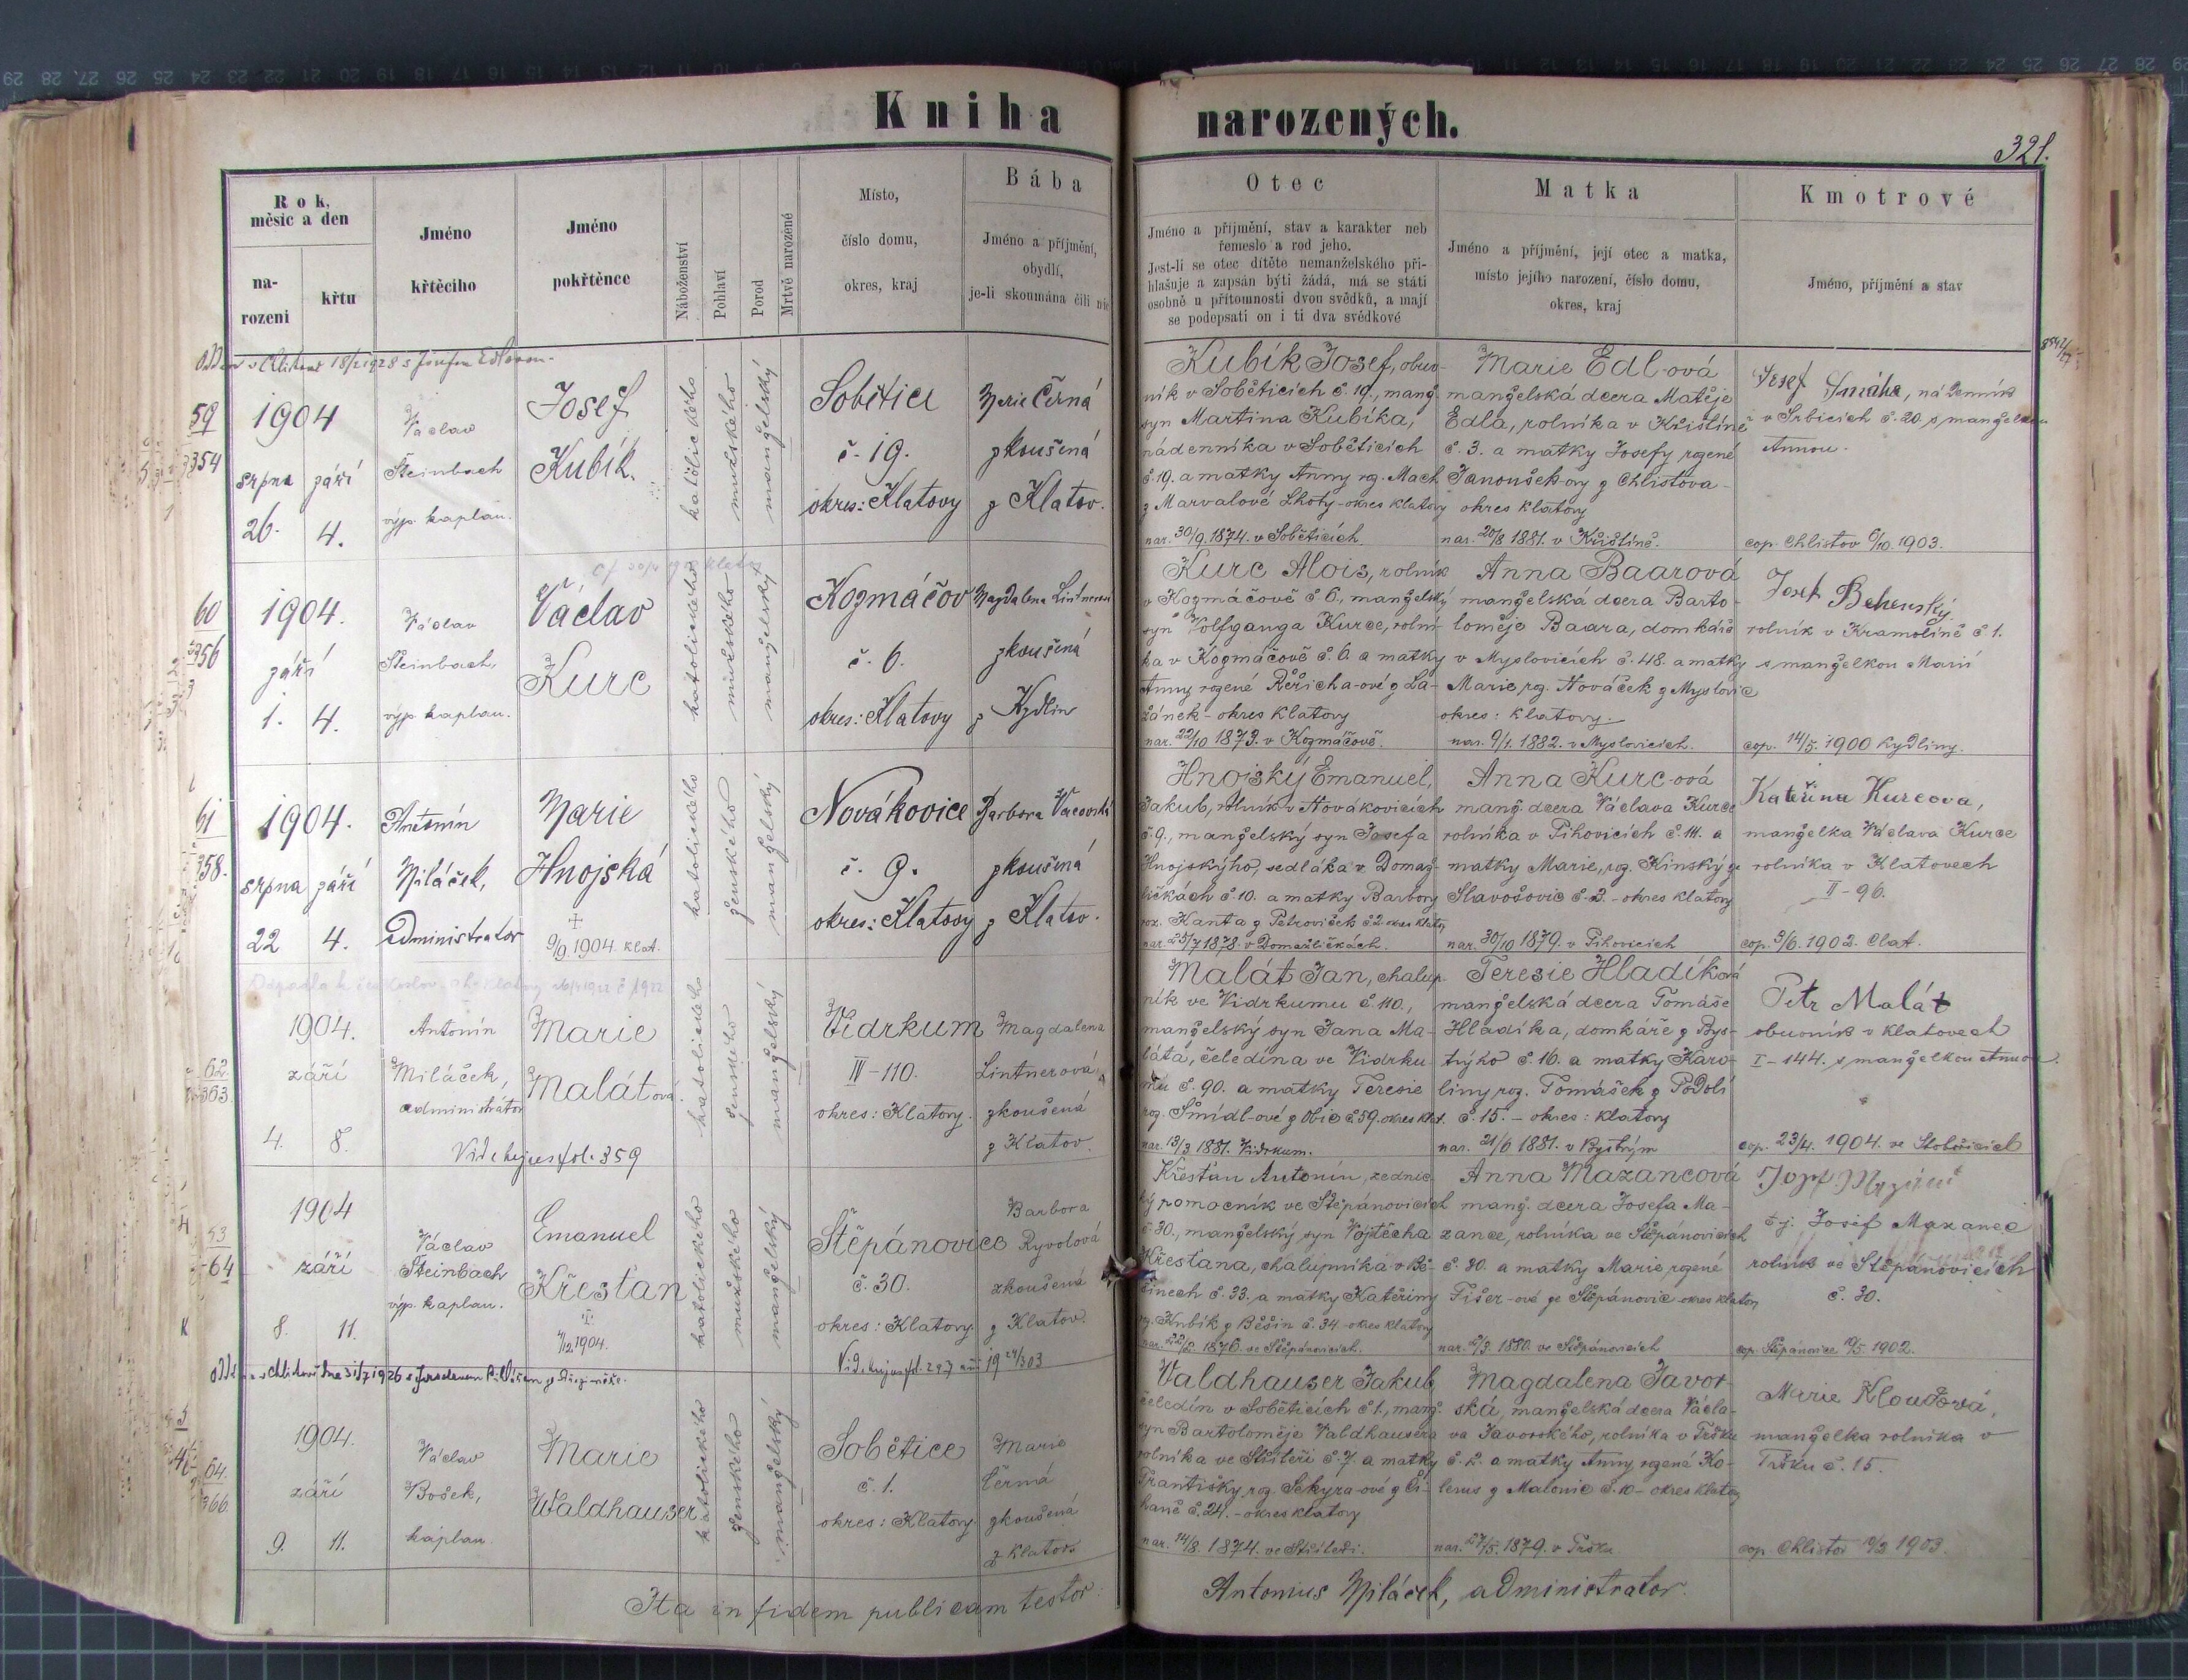 Kniha narozených.
321.
Rok, měsíc a den
na-
rození
křtu
Jméno
křtěcího
Jméno
pokřtěnce
Náboženství
Pohlaví
Porod
Mrtvě narozené
Místo,
číslo domu,
okres, kraj
Bába
Jméno a příjmění,
obydlí,
je-li zkoumána čili nic
Otec
Jméno a příjmění, stav a karakter neb
řemeslo a rod jeho.
Jest-li se otec dítěte nemanželského při-
hlašuje a zapsán býti žádá, má se státi
osobně u přítomnosti dvou svědků, a mají
se podepsati on i ti dva svědkové
Matka
Jméno a příjmění, její otec a matka,
místo jejího narození, číslo domu,
okres, kraj
Kmotrové
Jméno, příjmění a stav
59
354
1904
srpna září
26. 4.
Václav
Steinbach
výp. kaplan.
Josef
Kubík.
katolického
mužského
manželský
Sobětice
č. 19.
okres: Klatovy
Marie Černá
zkoušená
z Klatov.
Kubík Josef, obuv-
ník v Soběticích č. 19., manž.
syn Martina Kubíka,
nádenníka v Soběticích
č. 19. a matky Anny roz. Mach
z Marvalové Lhoty - okres Klatovy
nar. 30/9. 1874. v Soběticích.
Marie Edl-ová
manželská dcera Matěje
Edla, rolníka v Křištíně
č. 3. a matky Josefy rozené
Janoušek-ovy z Chlistova -
okres Klatovy
nar. 20/8 1881. v Křištíně.
Josef Smáha, nádenník
v Srbicích č. 20 s manželkou
Annou.
cop. Chlistov 6/10. 1903.
60
356
1904.
září
1. 4.
Václav
Steinbach,
výp. kaplan.
Václav
Kurc
katolického
mužského
manželský
Kozmáčov
č. 6.
okres: Klatovy
Magdalena Lintnerová
zkoušená
z Kydlin
Kurc Alois, rolník
v Kozmáčově č 6., manželský
syn Volfganga Kurce, rolní-
ka v Kozmáčově č. 6. a matky
Anny rozené Řeřicha-ové z Lá-
žánek - okres Klatovy
nar. 22/10 1873. v Kozmáčově.
Anna Baarová
manželská dcera Barto-
loměje Baara, domkáře
v Myslovicích č. 48. a matky
Marie, roz. Nováček z Myslovic
okres: Klatovy.
nar. 9/1. 1882. v Myslovicích.
Josef Behenský
rolník v Kramolíně č 1.
s manželkou Marií
cop. 14/5. 1900 Kydliny.
61
358.
1904.
srpna září
22 4.
Antonín
Miláček,
administrator
Marie
Hnojská
†
9/9. 1904. Klat.
katolického
ženského
manželský
Novákovice
č. 9.
okres: Klatovy
Barbora Vacovská
zkoušená
z Klatov.
Hnojský Emanuel,
Jakub, rolník v Novákovicích
č. 9., manželský syn Josefa
Hnojského, sedláka v Domaž-
ličkách č. 10. a matky Barbory
roz. Kanta z Petroviček č 2 okres Klatovy
nar. 25/7 1878. v Domažličkách.
Anna Kurc-ová
manž. dcera Václava Kurce
rolníka v Pihovicích č. 14. a
matky Marie, roz. Kinský ze
Slavošovic č. 2. - okres Klatovy
nar. 30/10 1879. v Pihovicích
Kateřina Kurcova,
manželka Václava Kurce
rolníka v Klatovech
II - 96.
cop. 3/6. 1902. Clat.
62.
363.
1904.
září
4. 8.
Antonín
Miláček,
administrátor
Marie
Malátová.
Vide hujus fol. 359
katolického
ženského
manželský
Vidrkum
IV - 110.
okres: Klatovy.
Magdalena
Lintnerová,
zkoušená
z Klatov.
Malát Jan, chalup-
ník ve Vidrkumu č 110.,
manželský syn Jana Ma-
láta, čeledína ve Vidrku-
mu č. 90. a matky Teresie
roz. Šmídl-ové z Obic č 59. okres Klat.
nar. 13/3 1881. Vidrkum.
Teresie Hladíková
manželská dcera Tomáše
Hladíka, domkáře z Bys-
trýho č. 16. a matky Karo-
liny roz. Tomášek z Podolí
č. 15. - okres: Klatovy
nar. 21/6 1881. v Bystrým
Petr Malát
obuvník v Klatovech
I - 144. s manželkou Annou.
cop. 23/4. 1904. ve
64
1904
září
8. 11.
Václav
Steinbach
výp. kaplan.
Emanuel
Křesťan
†
1904.
katolického
mužského
manželský
Štěpánovice
č. 30.
okres: Klatovy.
Barbora
Ryvolová
zkoušená
z Klatov.
Křesťan Antonín, zednic-
ký pomocník ve Štěpánovicích
č 30., manželský syn Vojtěcha
Křesťana, chalupníka v Bě-
šinech č. 33. a matky Kateřiny
roz. Kubík z Běšin č. 34. okres Klatovy
1876. ve Štěpánovicích.
Anna Mazancová
manž. dcera Josefa Ma-
zance, rolníka ve Štěpánovicích
č. 30. a matky Marie, rozené
Fišer-ové ze Štěpánovic okres Klatovy
nar. 2/3. 1880. ve Štěpánovicích
t. j. Josef Mazanec
rolník ve Štěpánovicích
č. 30.
cop. Štěpánovice 1902.
64.
366
1904.
září
9. 11.
Václav
Bošek,
kaplan.
Marie
Waldhauser
katolického
ženského
manželský
Sobětice
č. 1.
okres: Klatovy.
Marie
Černá
zkoušená
z Klatov
Valdhauser Jakub
čeledín v Soběticích č 1., manž.
syn Bartoloměje Valdhausera
rolníka ve Střítěři č. 7. a matky
Františky, roz. Sekyra-ové z Či-
haně č. 24. - okres Klatovy
nar. 14/8. 1874. ve Střítěři.
Magdalena Javor-
ská, manželská dcera Václa-
va Javorského, rolníka v Tržku
č. 2. a matky Anny rozené Ko-
lerus z Malonic č. 10 - okres Klatovy
nar. 27/5. 1879. v Tržku
Marie Kloudová,
manželka rolníka v
Tržku č. 15.
cop. Chlistov 1903.
Ita in fidem publicam testor:
Antonius Miláček, administrator.